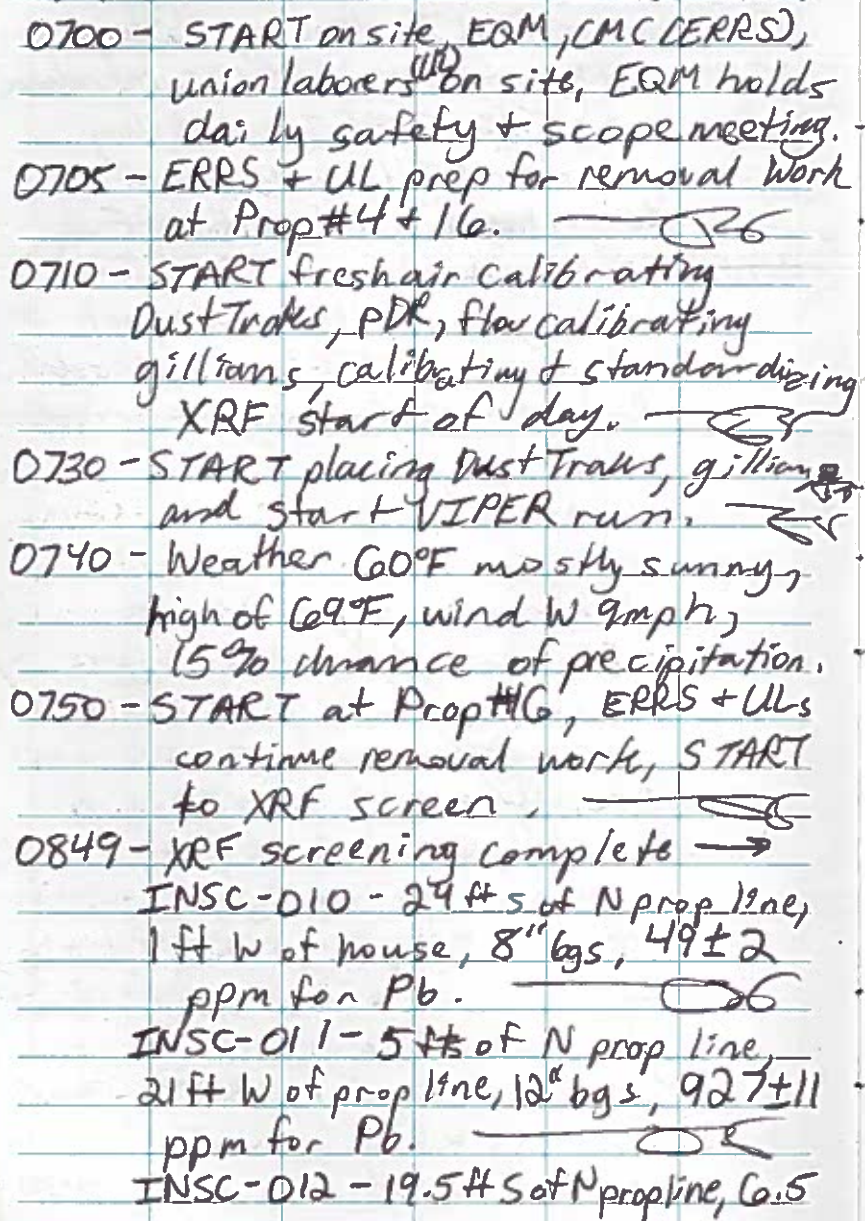 0700 - START on site, EQM, CMC (ERRS),
union laborers (UL) on site, EQM holds
daily safety + scope meeting.
0705 - ERRS + UL prep for removal work
at Prop #4 + 16.
0710 - START fresh air calibrating
DustTraks, pDR, flow calibrating
gillians, calibrating + standardizing
XRF start of day.
0730 - START placing DustTraks, gillians
and start VIPER run.
0740 - Weather 60°F mostly sunny,
high of 69°F, wind W 9mph,
15% chance of precipitation.
0750 - START at Prop #16, ERRS + ULs
continue removal work, START
to XRF screen.
0849 - XRF screening complete →
INSC-010 - 29 ft S of N prop line,
1 ft W of house, 8" bgs, 49 ± 2
ppm for Pb.
INSC-011 - 5 ft S of N prop line,
21 ft W of prop line, 12" bgs, 927 ± 11
ppm for Pb.
INSC-012 - 19.5 ft S of N prop line, 6.5